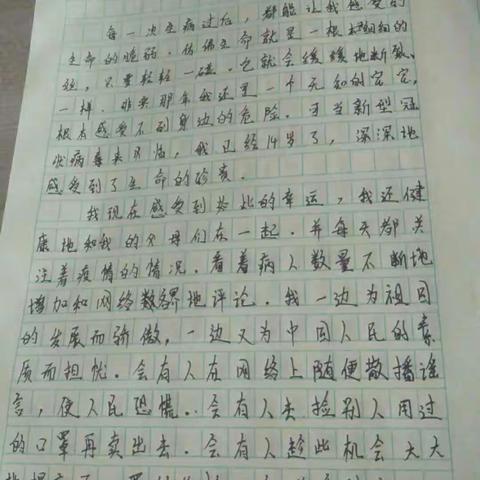 每一次生病过后，都能让我感受到
生命的脆弱。仿佛生命就是一根细细的
弦，只要轻轻一碰，它就会缓缓地断裂
一样。非典那年我还是一个无知的宝宝，
根本感受不到身边的危险。可当新型冠
状病毒来临，我已经14岁了，深深地
感受到了生命的珍贵。
我现在感受到如此的幸运，我还健
康地和我的父母们在一起。并每天都关
注着疫情的情况。看着病人数量不断地
增加和网络数名地评论。我一边为祖国
的发展而骄傲，一边又为中国人民的素
质而担忧。会有人在网络上随便散播谣
言，使人民恐慌。会有人去捡别人用过
的口罩再卖出去。会有人趁此机会大大